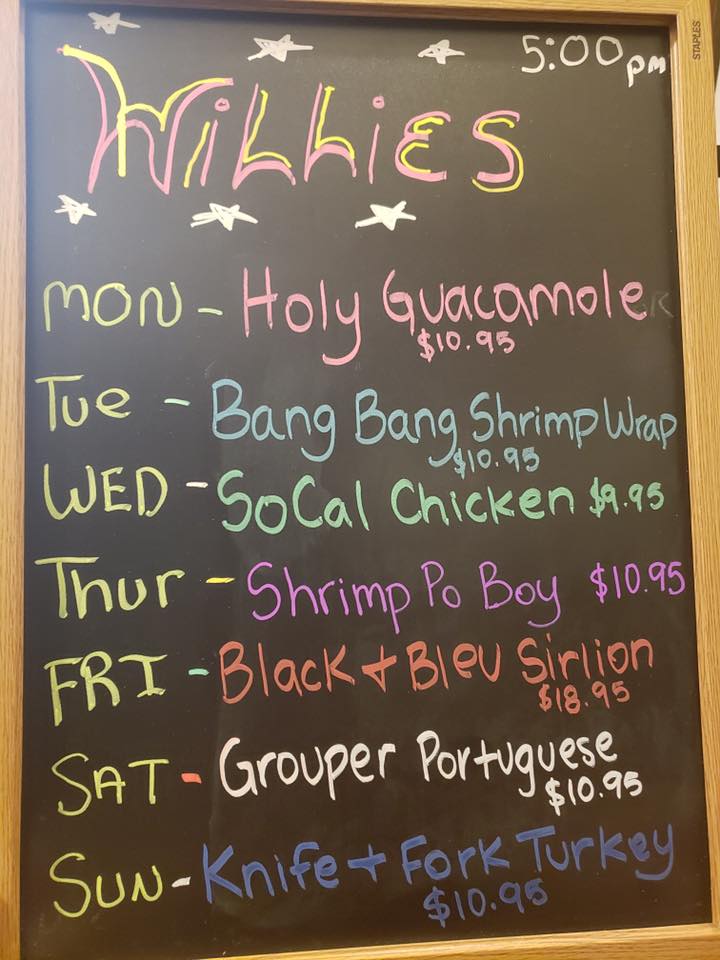 STAPLES
5:00 pm
WiLLiES
MON - Holy Guacamole
$10.95
Tue - Bang Bang Shrimp Wrap
$10.95
WED - SoCal Chicken $9.95
Thur - Shrimp Po Boy $10.95
FRI - Black + Bleu Sirlion
$18.95
SAT - Grouper Portuguese
$10.95
SUN - Knife + Fork Turkey
$10.95